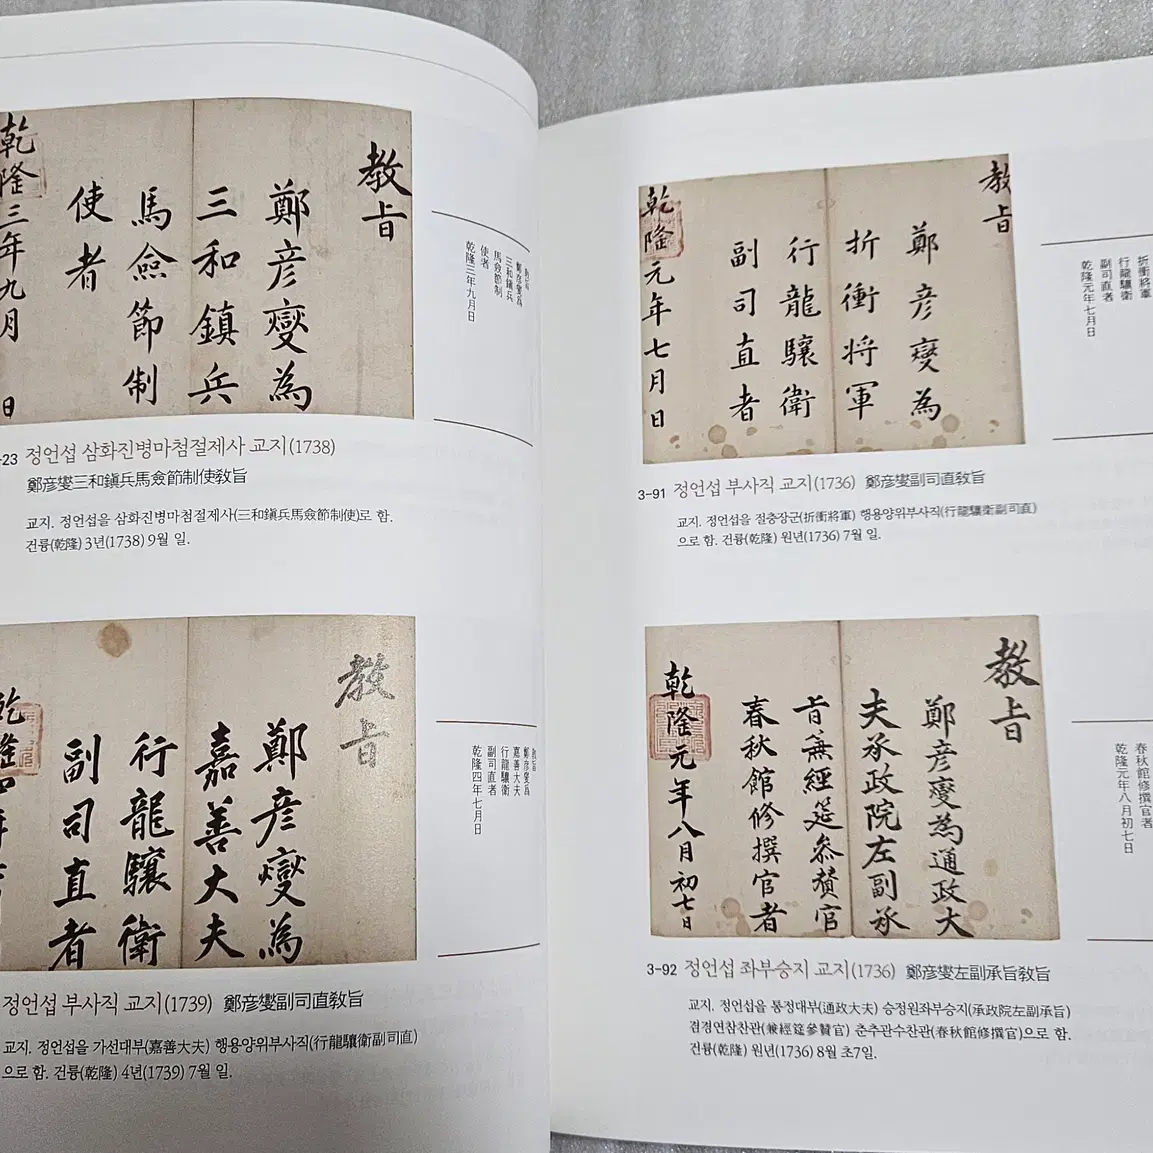 教旨
鄭彦燮為
三和鎮兵
馬僉節制
使者
乾隆三年九月 日
鄭彦燮爲
三和鎭兵
馬僉節制
使者
乾隆三年九月日
-23 정언섭 삼화진병마첨절제사 교지(1738)
鄭彦燮三和鎭兵馬僉節制使敎旨
교지. 정언섭을 삼화진병마첨절제사(三和鎭兵馬僉節制使)로 함.
건륭(乾隆) 3년(1738) 9월 일.
教旨
鄭彦燮為
嘉善大夫
行龍驤衛
副司直者
乾隆四年
敎旨
鄭彦燮爲
嘉善大夫
行龍驤衛
副司直者
乾隆四年七月日
정언섭 부사직 교지(1739) 鄭彦燮副司直敎旨
교지. 정언섭을 가선대부(嘉善大夫) 행용양위부사직(行龍驤衛副司直)
으로 함. 건륭(乾隆) 4년(1739) 7월 일.
教旨
鄭彦燮為
折衝将軍
行龍驤衛
副司直者
乾隆元年七月日
折衝將軍
行龍驤衛
副司直者
乾隆元年七月日
3-91 정언섭 부사직 교지(1736) 鄭彦燮副司直敎旨
교지. 정언섭을 절충장군(折衝將軍) 행용양위부사직(行龍驤衛副司直)
으로 함. 건륭(乾隆) 원년(1736) 7월 일.
教旨
鄭彦燮為通政大
夫承政院左副承
旨兼經筵參賛官
春秋館修撰官者
乾隆元年八月初七日
春秋館修撰官者
乾隆元年八月初七日
3-92 정언섭 좌부승지 교지(1736) 鄭彦燮左副承旨敎旨
교지. 정언섭을 통정대부(通政大夫) 승정원좌부승지(承政院左副承旨)
겸경연참찬관(兼經筵參贊官) 춘추관수찬관(春秋館修撰官)으로 함.
건륭(乾隆) 원년(1736) 8월 초7일.